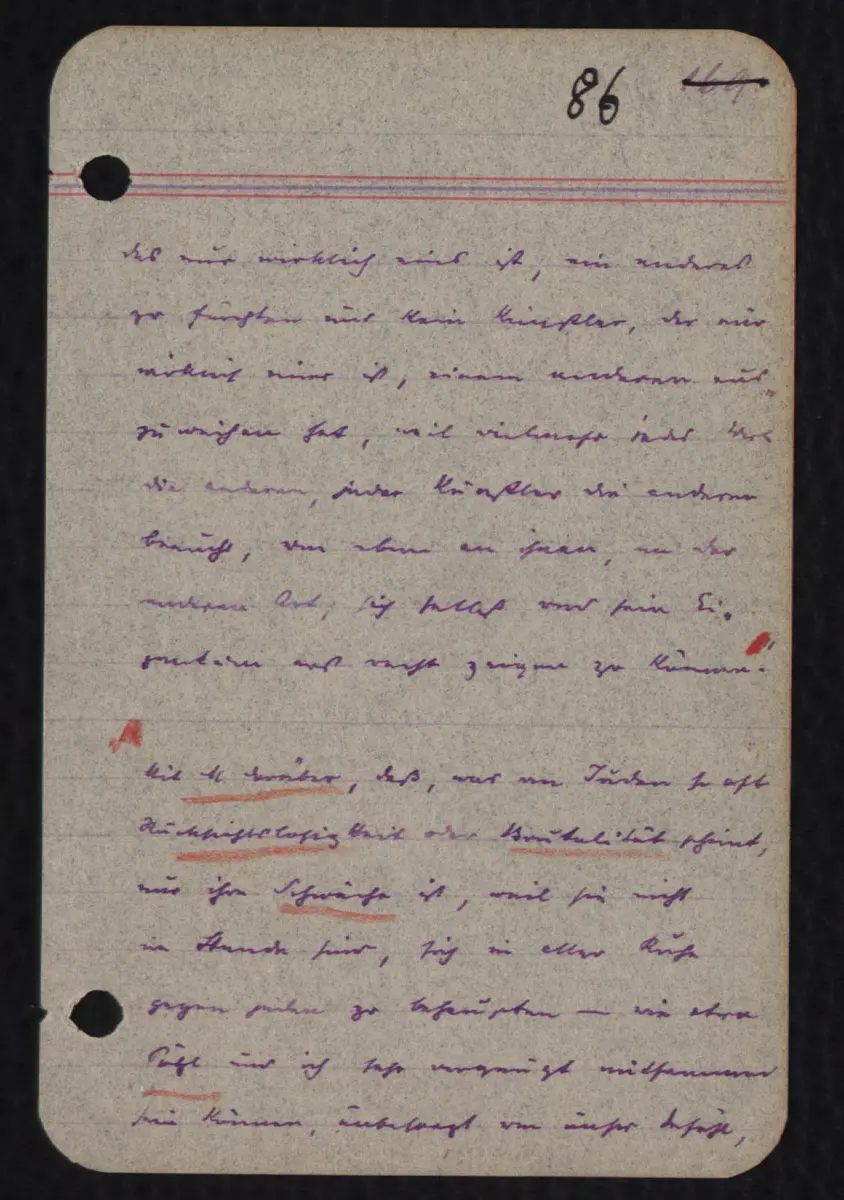 86 169
das nur wirklich eines ist, ein anderes
zu fürchten und kein Künstler, der nur
wirklich einer ist, einem anderen aus-
zuweichen hat, weil vielmehr jedes Werk
die anderen, jeder Künstler die anderen
braucht, um eben an ihnen, an der
anderen Art, sich selbst und sein Ei-
gentum erst recht zeigen zu können."
Mit M darüber, daß, was an Juden so oft
Rücksichtslosigkeit oder Brutalität scheint,
nur ihre Schwäche ist, weil sie nicht
im Stande sind, sich in aller Ruhe
gegen jeden zu behaupten – wie etwa
und ich sehr vergnügt mitsammen
sein können, unbesorgt um unser Gefühl,